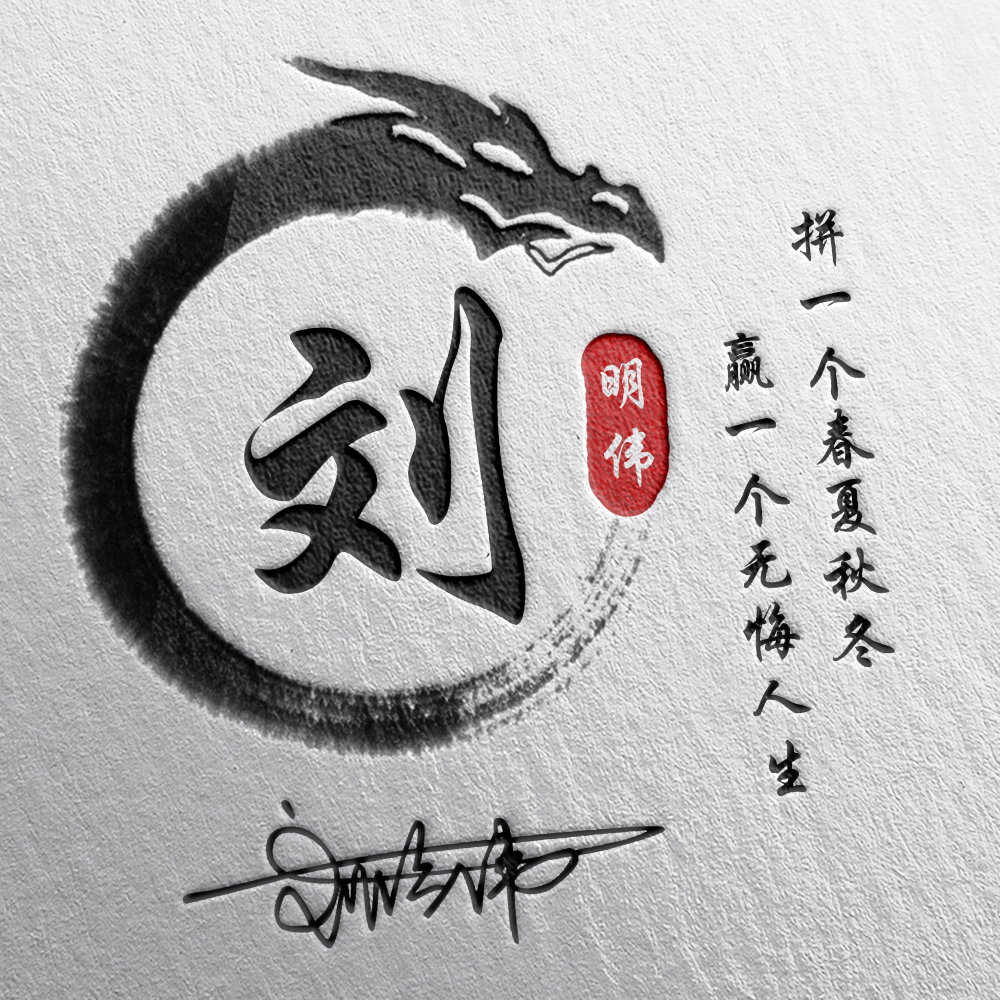 刘
明伟
拼一个春夏秋冬
赢一个无悔人生